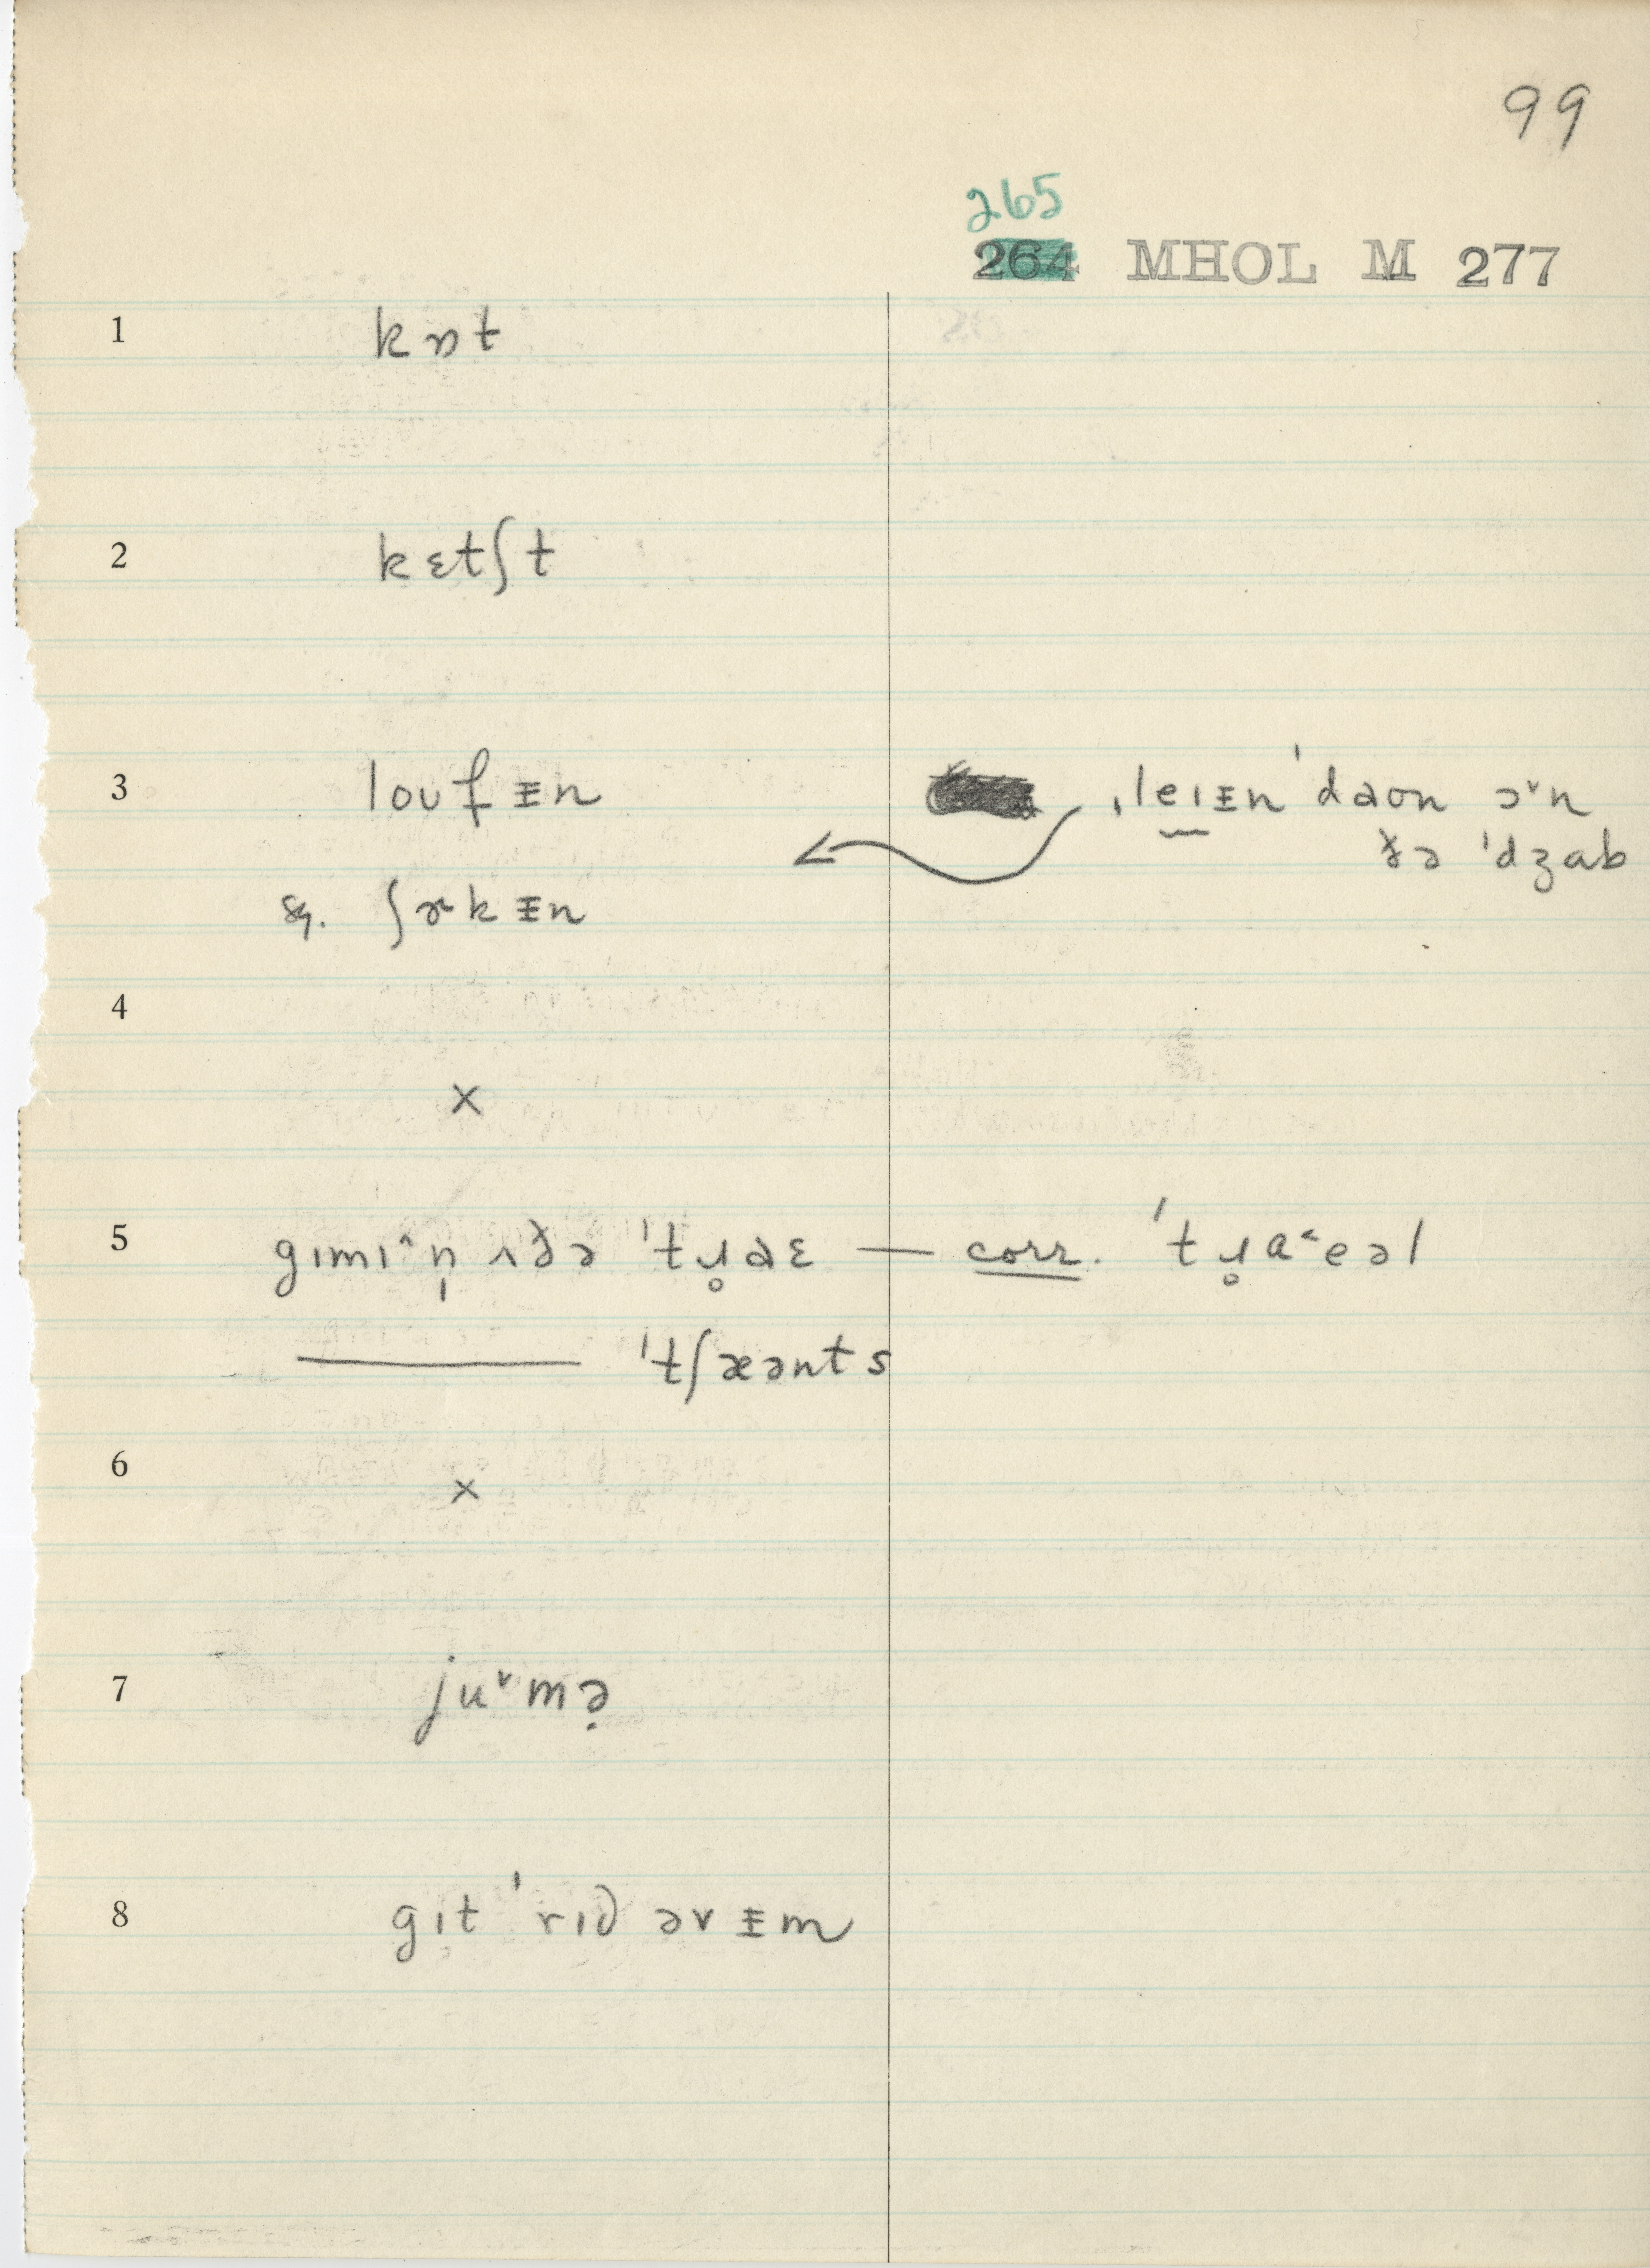 99
265
264 MHOL M 277
1 kɒt
2 kɛtʃt
3 loʊf̵ᵻn ˌleɪᵻn ˈdaʊn ɔ˅n
ðə ˈdʒɑb
sg. ʃɚkᵻn
4
×
5 gɪmɪ˄n̩ ʌðə ˈtɹ̥aɛ — corr. ˈtɹ̥a˂eəl
——— ˈtʃæənts
6 ×
7 ju˅mə̣
8 gɪt ˈrɪd əvᵻm